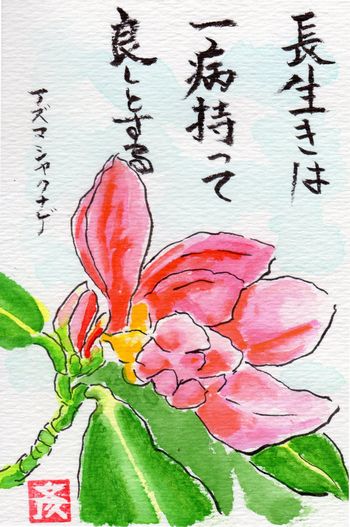 長生きは
一病持って
良しとする
アズマシャクナゲ